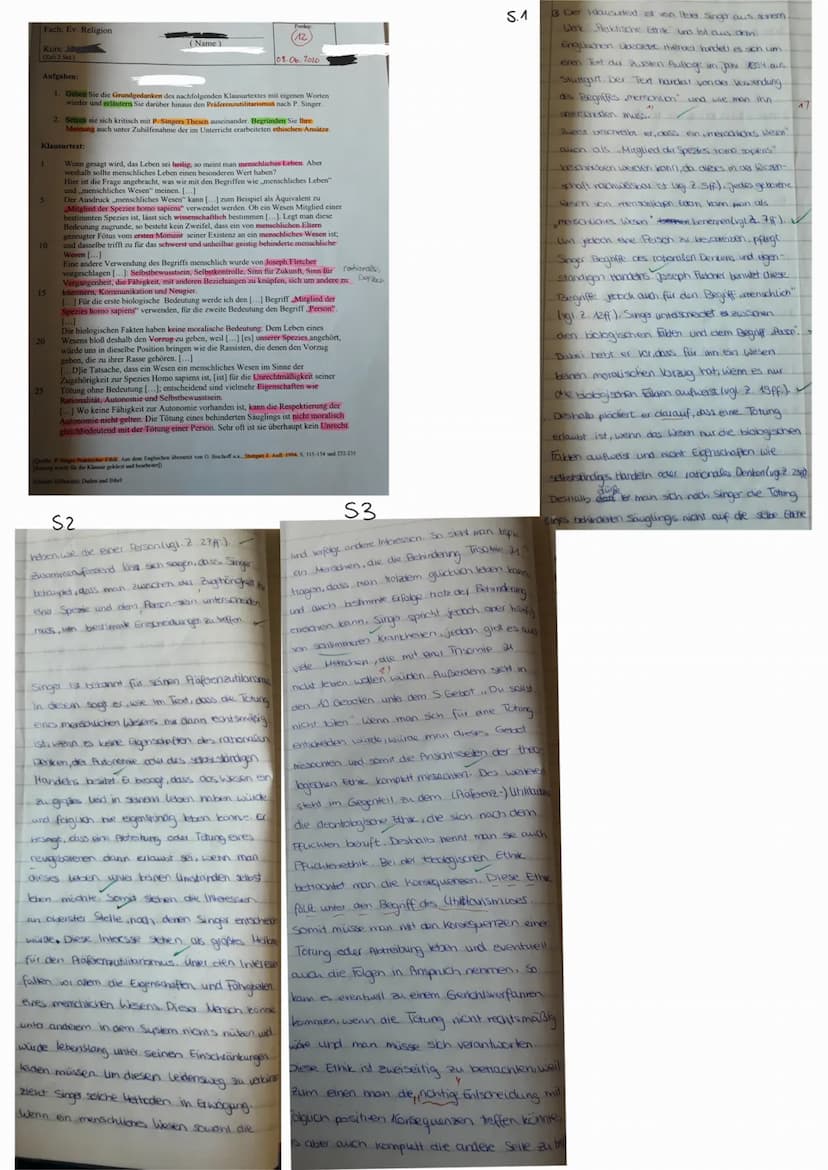 Fach: Ev. Religion
( Name )
12
03.06.2020
Aufgaben:
1. Geben Sie die Grundgedanken des nachfolgenden Klausurtextes mit eigenen Worten
wieder und erläutern Sie darüber hinaus den Präferenzutilitarismus nach P. Singer.
2. Setzen sie sich kritisch mit P. Singers Thesen auseinander. Begründen Sie Ihre
Meinung auch unter Zuhilfenahme der im Unterricht erarbeiteten ethischen Ansätze.
Klausurtext:
1 Wenn gesagt wird, das Leben sei heilig, so meint man menschliches Leben. Aber
weshalb sollte menschliches Leben einen besonderen Wert haben?
Hier ist die Frage angebracht, was wir mit den Begriffen wie „menschliches Leben"
und „menschliches Wesen" meinen. [...]
5 Der Ausdruck „menschliches Wesen" kann [...] zum Beispiel als Äquivalent zu
„Mitglied der Spezies homo sapiens" verwendet werden. Ob ein Wesen Mitglied einer
bestimmten Spezies ist, lässt sich wissenschaftlich bestimmen [...]. Legt man diese
Bedeutung zugrunde, so besteht kein Zweifel, dass ein von menschlichen Eltern
gezeugter Fötus vom ersten Moment seiner Existenz an ein menschliches Wesen ist;
10 und dasselbe trifft zu für das schwerst und unheilbar geistig behinderte menschliche
Wesen [...]
Eine andere Verwendung des Begriffs menschlich wurde von Joseph Fletcher
vorgeschlagen [...] Selbstbewusstsein, Selbstkontrolle, Sinn für Zukunft, Sinn für
Vergangenheit, die Fähigkeit, mit anderen Beziehungen zu knüpfen, sich um andere zu
15 kümmern, Kommunikation und Neugier.
[...] Für die erste biologische Bedeutung werde ich den [...] Begriff „Mitglied der
Spezies homo sapiens" verwenden, für die zweite Bedeutung den Begriff „Person".
[...]
Die biologischen Fakten haben keine moralische Bedeutung: Dem Leben eines
20 Wesens bloß deshalb den Vorzug zu geben, weil [...] [es] unserer Spezies angehört,
würde uns in dieselbe Position bringen wie die Rassisten, die denen den Vorzug
geben, die zu ihrer Rasse gehören. [...]
[...D]ie Tatsache, dass ein Wesen ein menschliches Wesen im Sinne der
Zugehörigkeit zur Spezies Homo sapiens ist, [ist] für die Unrechtmäßigkeit seiner
25 Tötung ohne Bedeutung [...]; entscheidend sind vielmehr Eigenschaften wie
Rationalität, Autonomie und Selbstbewusstsein.
[...] Wo keine Fähigkeit zur Autonomie vorhanden ist, kann die Respektierung der
Autonomie nicht gelten. Die Tötung eines behinderten Säuglings ist nicht moralisch
gleichbedeutend mit der Tötung einer Person. Sehr oft ist sie überhaupt kein Unrecht.
S.1
Werk „Praktische Ethik" und ist aus dem
Englischen übersetzt. Hierbei handelt es sich um
einen Text der zweiten Auflage im Jahr 1994 aus
Stuttgart. Der Text handelt von der Verwendung
des Begriffs „menschlich" und wie man ihn
unterscheiden muss.
Zuerst beschreibt er, dass ein „menschliches Wesen"
auch als „Mitglied der Spezies homo sapiens"
beschrieben werden kann, da dieses in der Wissen-
schaft nachweisbar ist (vgl. Z. 5ff). Jedes geborene
Wesen von menschlichen Eltern kann man als
„menschliches Wesen" benennen (vgl. Z. 7ff).
Um jedoch eine Person zu beschreiben, pflegt
Singer Begriffe des rationalen Denkens und eigen-
ständigen Handelns. Joseph Fletcher benutzt diese
Begriffe jedoch auch für den Begriff „menschlich"
(vgl. Z. 12ff). Singer unterscheidet also zwischen
den biologischen Fakten und dem Begriff „Person".
Dabei hebt er vor, dass für ihn ein Wesen
keinen moralischen Vorzug hat, wenn es nur
die biologischen Fakten aufweist (vgl. Z. 19ff).
Deshalb plädiert er darauf, dass eine Tötung
erlaubt ist, wenn das Wesen nur die biologischen
Fakten aufweist und nicht Eigenschaften wie
selbstständiges Handeln oder rationales Denken
Deshalb dürfe man sich nach Singer die Tötung
eines behinderten Säuglings nicht auf die selbe Ebene
S2
heben, wie die einer Person (vgl. Z. 27ff).
Zusammenfassend lässt sich sagen, dass Singer
behauptet, dass man zwischen der Zugehörigkeit
eine Spezies und dem „Person-sein" unterscheiden
muss, um bestimmte Entscheidungen zu treffen.
Singer ist bekannt für seinen Präferenzutilitarismus.
In diesem sagt er, wie im Text, dass die Tötung
eines menschlichen Wesens nur dann rechtmäßig
ist, wenn es keine Eigenschaften des rationalen
Denken, der Autonomie oder des selbstständigen
Handelns besitzt. Er besagt, dass das Wesen ein
zu großes Leid in seinem Leben haben würde
und folglich nie eigenständig leben könne. Er
besagt, dass eine Abtreibung oder Tötung eines
neugeborenen dann erlaubt sei, wenn man
dieses Leben unter keinen Umständen selbst
leben möchte. Somit stehen die Interessen
an oberster Stelle, nach denen Singer
würde. Diese Interesse stehen als größtes
für den Präferenzutilitarismus. Unter den
fallen vor allem die Eigenschaften und Fähigkeiten
eines menschlichen Wesens. Dieser Mensch könne
unter anderem in dem System nichts nützen und
würde lebenslang unter seinen Einschränkungen
leiden müssen. Um diesen Leidensweg zu
zieht Singer solche Methoden in Erwägung.
Wenn ein menschliches Wesen sowohl die
S3
und verfolgt andere Interessen. So sieht man
an Menschen, die die Behinderung Trisomie 21
tragen, dass man trotzdem glücklich leben kann
und auch bestimmte Erfolge trotz der Behinderung
erreichen kann. Singer spricht jedoch aber häufig
von schlimmeren Krankheiten, jedoch gibt es auch
viele Menschen, die mit einer Trisomie 21
nicht leben wollen würden. Außerdem steht in
den 10 Geboten unter dem 5. Gebot „Du sollst
nicht töten". Wenn man sich für eine Tötung
entscheiden würde, würde man dieses Gebot
missachten und somit die Ansichtsweisen der theo-
logischen Ethik komplett missachten. Des weiteren
steht im Gegenteil zu dem (Präferenz-) Utilitarismus
die deontologische Ethik, die sich nach dem
Pflichten beruft. Deshalb nennt man sie auch
Pflichtenethik. Bei der teleologischen Ethik
betrachtet man die Konsequenzen. Diese Ethik
fällt unter den Begriff des Utilitarismuses.
Somit müsse man mit den Konsequenzen einer
Tötung oder Abtreibung leben und eventuell
auch die Folgen in Anspruch nehmen. So
kann es eventuell zu einem Gerichtsverfahren
kommen, wenn die Tötung nicht rechtsmäßig
wäre und man müsse sich verantworten.
Diese Ethik ist zweiseitig zu betrachten, weil
zum einen man die „richtige" Entscheidung mit
folglich positiven Konsequenzen treffen könnte,
es aber auch komplett die andere Seite zu